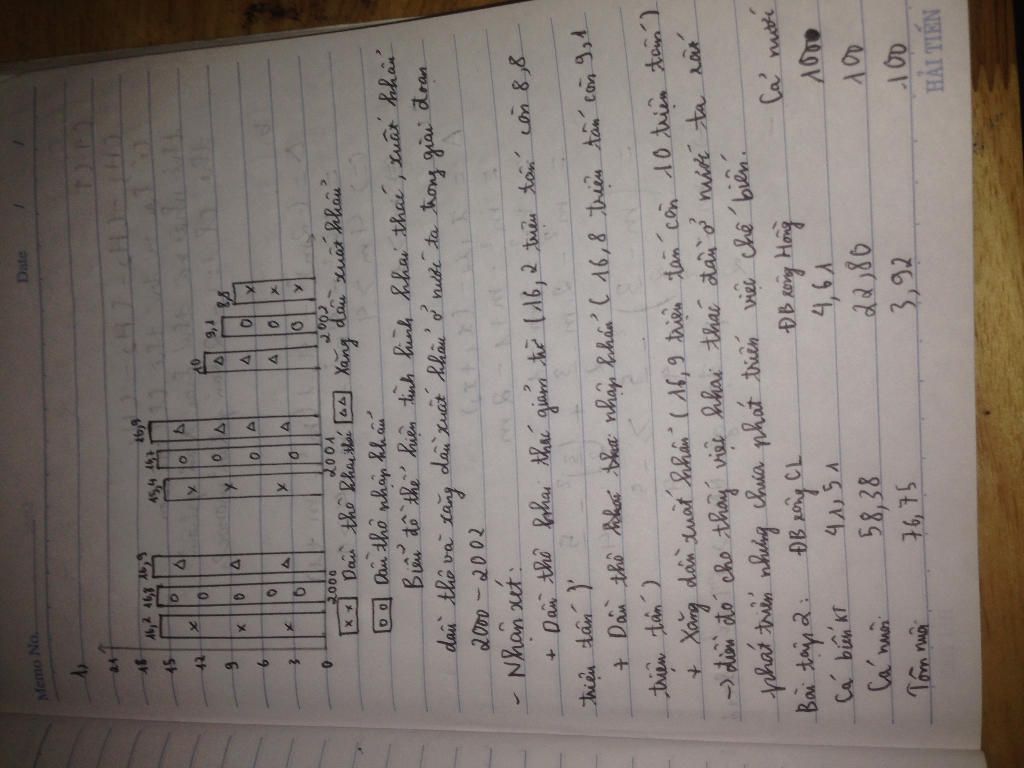 Memo No. Date / /
1,
21
18
15
12
9
6
3
0
16,2 16,8 16,9
15,4 16,7 16,9
10 9,1 8,8
2000 2001 2002
x x Dầu thô khai thác ΔΔ Xăng dầu xuất khẩu
o o Dầu thô nhập khẩu
Biểu đồ thể hiện tình hình khai thác, xuất khẩu
dầu thô và xăng dầu xuất khẩu ở nước ta trong giai đoạn
2000 - 2002
- Nhận xét:
+ Dầu thô khai thác giảm từ (16,2 triệu tấn còn 8,8
triệu tấn)
+ Dầu thô khai thác nhập khẩu (16,8 triệu tấn còn 9,1
triệu tấn)
+ Xăng dầu xuất khẩu (16,9 triệu tấn còn 10 triệu tấn)
→ điều đó cho thấy việc khai thác dầu ở nước ta rất
phát triển nhưng chưa phát triển việc chế biến.
Bài tập 2: ĐB sông CL ĐB sông Hồng Cả nước
Cá biển KT 41,51 4,61 100
Cá nuôi 58,38 22,80 100
Tôm nuôi 76,75 3,92 100
HẢI TIẾN